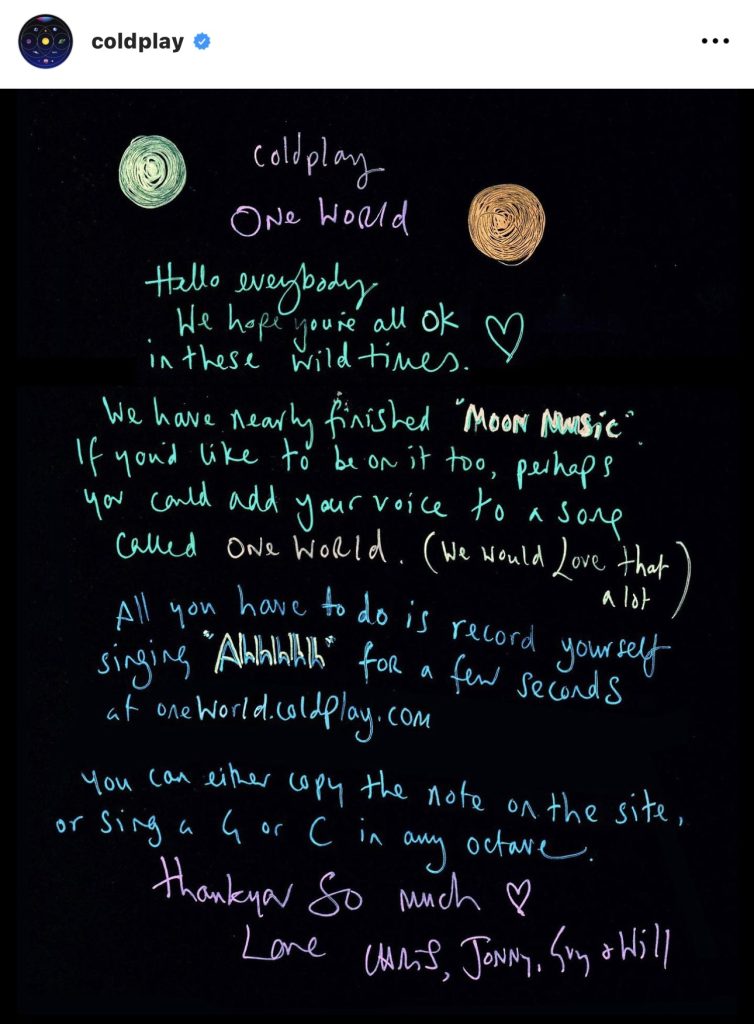 coldplay
coldplay
ONE WORLD
Hello everybody
We hope you're all OK
in these wild times.
We have nearly finished "MOON MUSIC".
If you'd like to be on it too, perhaps
you could add your voice to a song
called ONE WORLD. (We would Love that
a lot)
All you have to do is record yourself
singing "Ahhhhhh" for a few seconds
at oneworld.coldplay.com
you can either copy the note on the site,
or sing a G or C in any octave.
thankyou so much
Love CHRIS, JONNY, Guy + Will